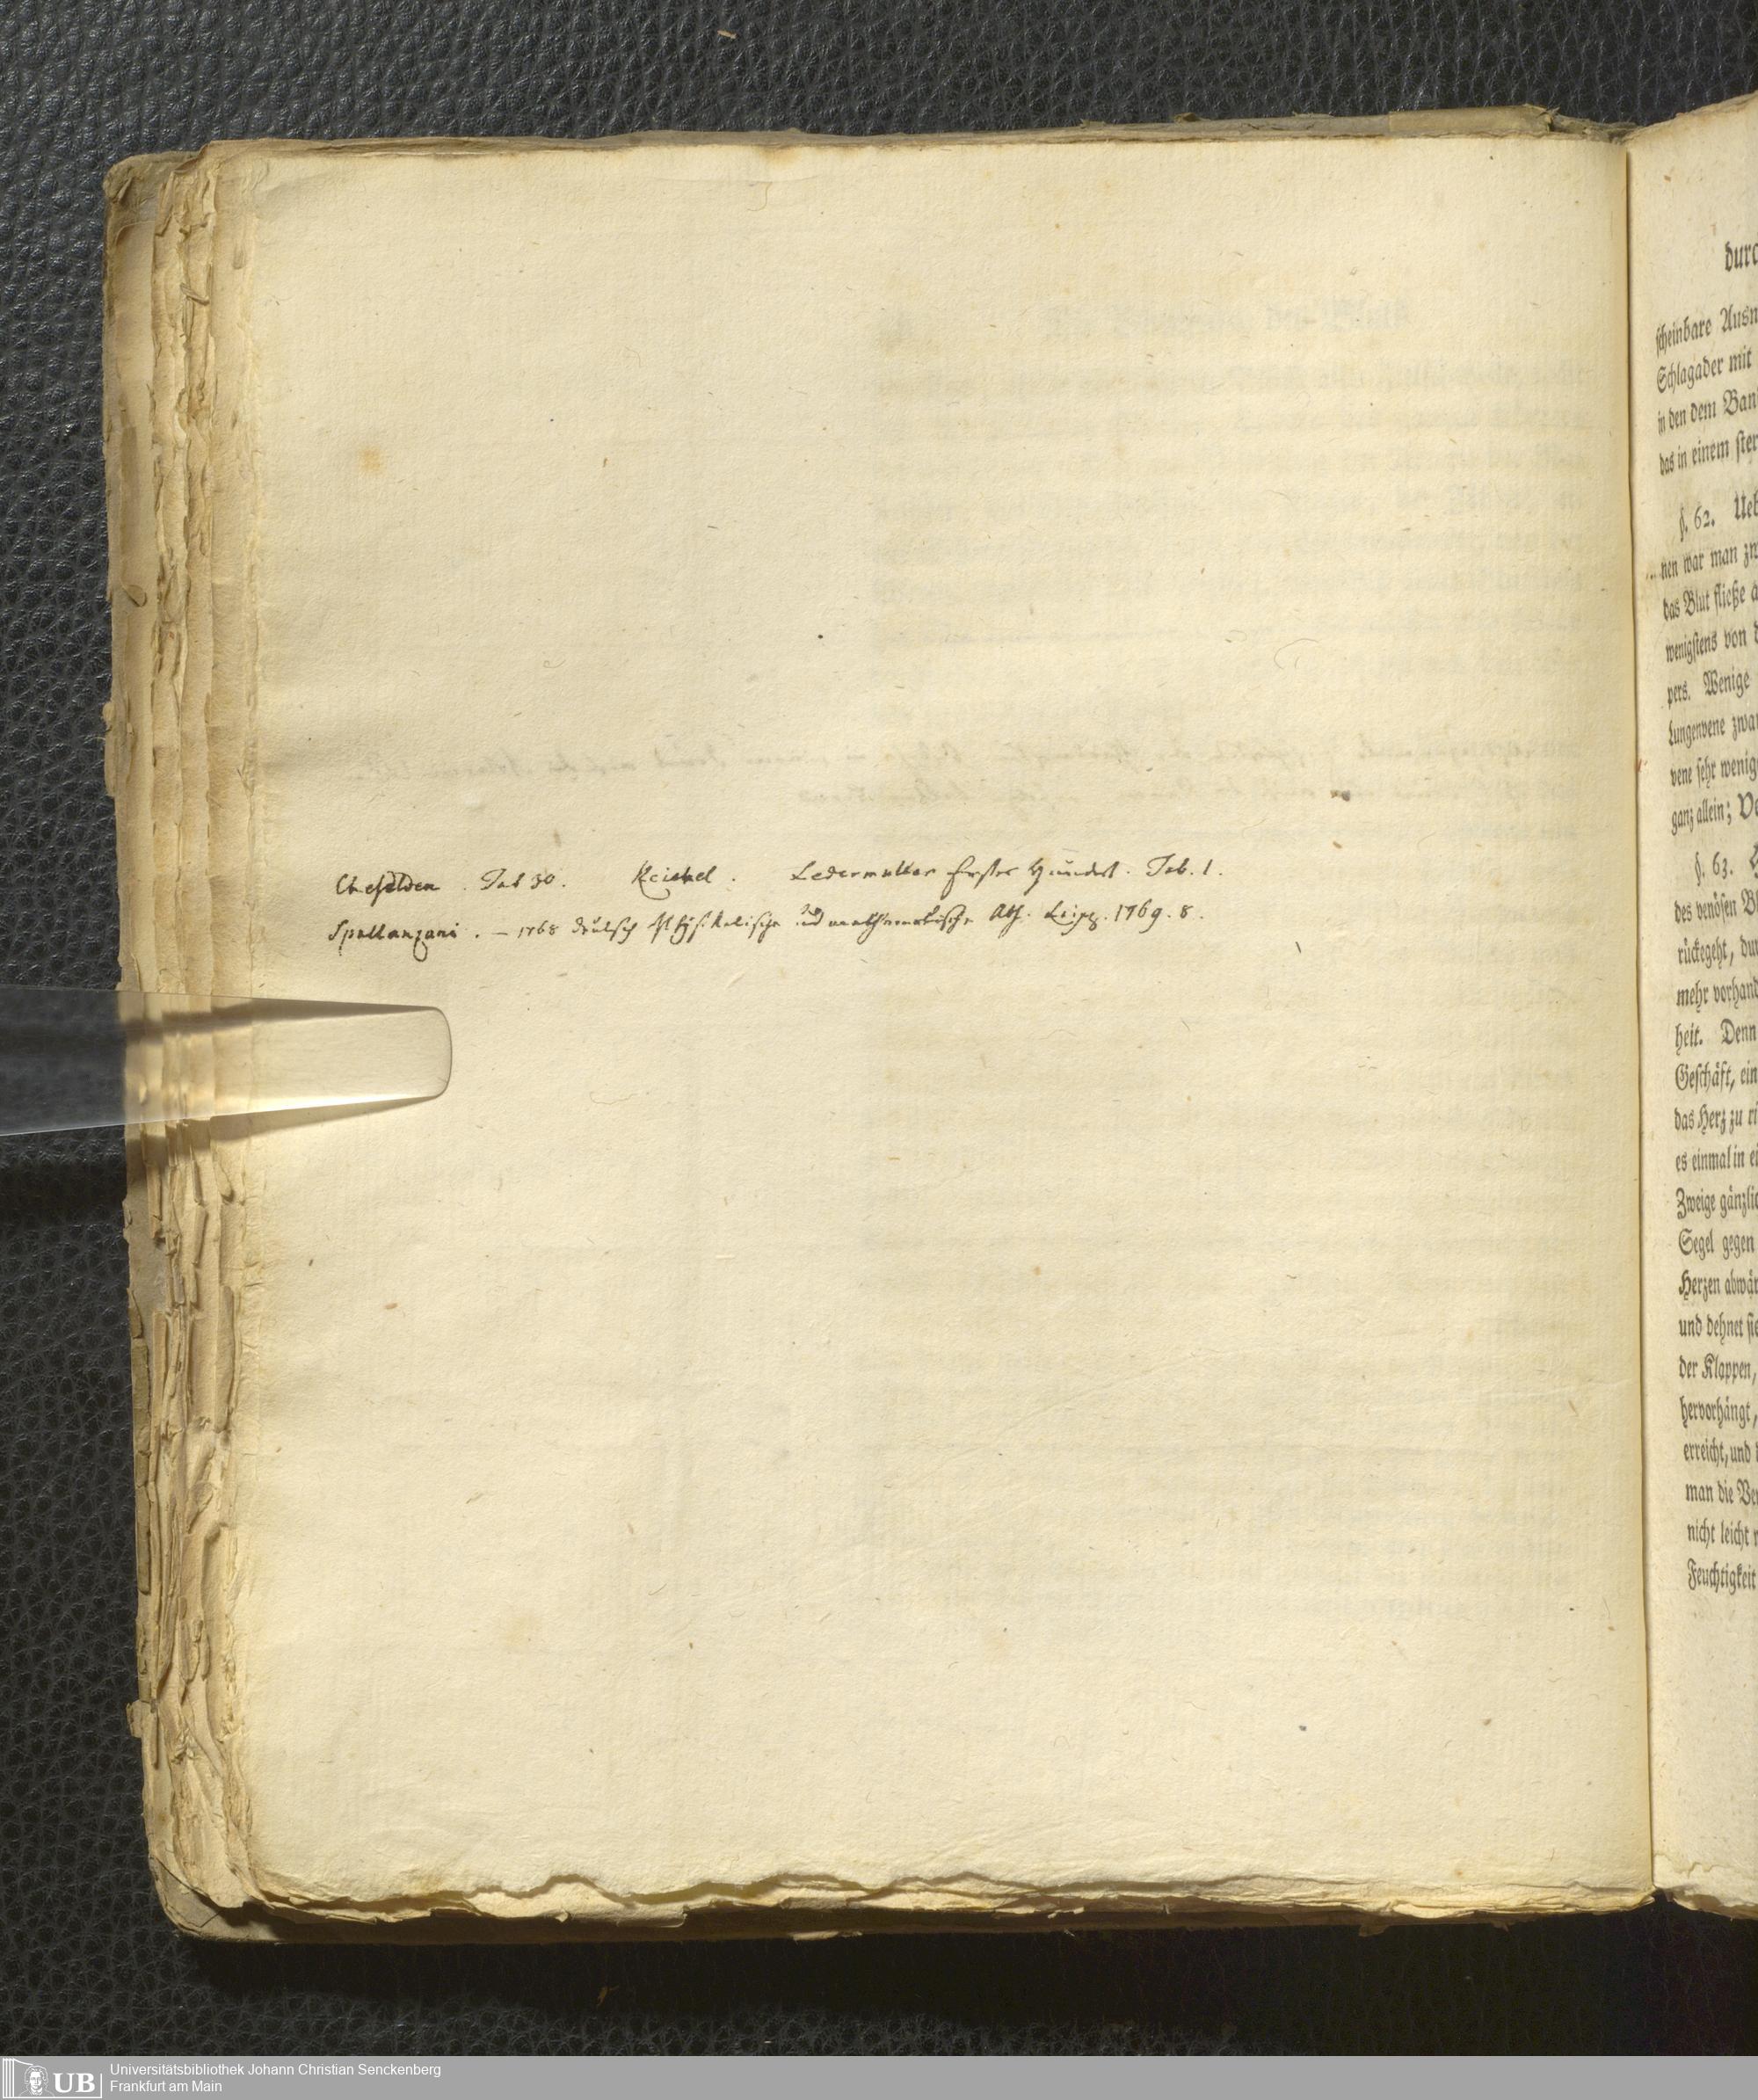 Cheselden. Tab 30. Reichel. Ledermüller Erstes Hundert. Tab. 1.
Spallanzani. — 1768 deutsch Physikalische und mathematische Abh. Leipz. 1769. 8.
durc
scheinbare Ausn
Schlagader mit
in den dem Ban
das in einem ster
§. 62. Ueb
nen war man zw
das Blut fließe a
wenigstens von d
pers. Wenige
Lungenvene zwar
vene sehr wenig
ganz allein; Ve
§. 63. H
des venösen Bl
rückegeht, dur
mehr vorhand
heit. Denn
Geschäft, ein
das Herz zu ri
es einmal in ei
Zweige gänzlic
Segel gegen
Herzen abwär
und dehnet sie
der Klappen,
hervorhängt,
erreicht, und
man die Ve
nicht leicht
Feuchtigkeit
UB Universitätsbibliothek Johann Christian Senckenberg
Frankfurt am Main